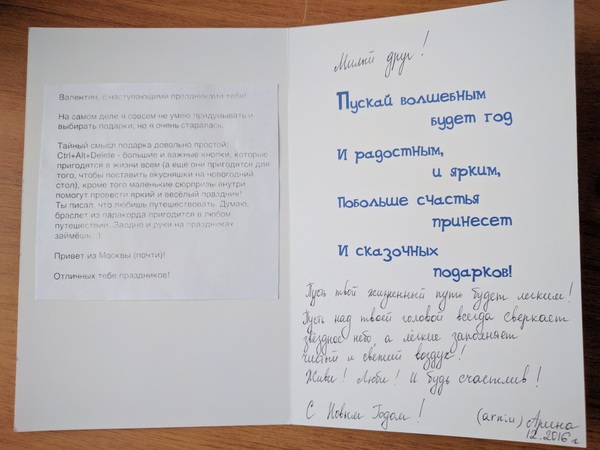 Валентин, с наступающими праздниками тебя!
На самом деле я совсем не умею придумывать и
выбирать подарки, но я очень старалась.
Тайный смысл подарка довольно простой:
Ctrl+Alt+Delete - большие и важные кнопки, которые
пригодятся в жизни всем (а еще они пригодятся для
того, чтобы поставить вкусняшки на новогодний
стол), кроме того маленькие сюрпризы внутри
помогут провести яркий и весёлый праздник!
Ты писал, что любишь путешествовать. Думаю,
браслет из паракорда пригодится в любом
путешествии. Заодно и руки на праздниках
займёшь :)
Привет из Москвы (почти)!
Отличных тебе праздников!
Милый друг!
Пускай волшебным
будет год
И радостным,
и ярким,
Побольше счастья
принесет
И сказочных
подарков!
Пусть твой жизненный путь будет легким!
Пусть над твоей головой всегда сверкает
звёздное небо, а лёгкие заполняет
чистый и свежий воздух!
Живи! Люби! И будь счастлив!
С Новым Годом!
Арина
12.2016 г